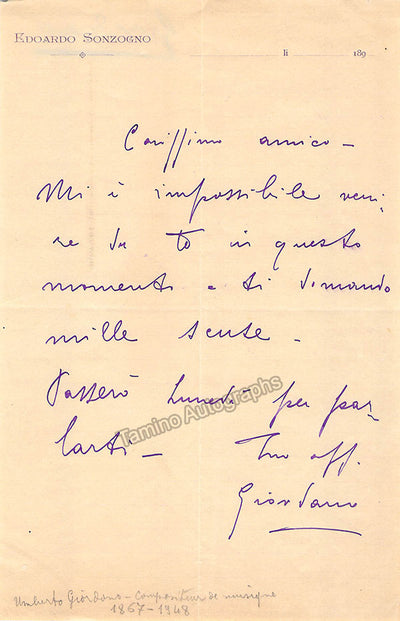 EDOARDO SONZOGNO
li 189
Carissimo amico –
Mi è impossibile veni-
re da te in questo
momento e ti domando
mille scuse –
Passerò Lunedì per par-
larti –
Tuo aff.
Giordano
Tamino Autographs
Umberto Giordano – Compositeur de musique
1867-1948